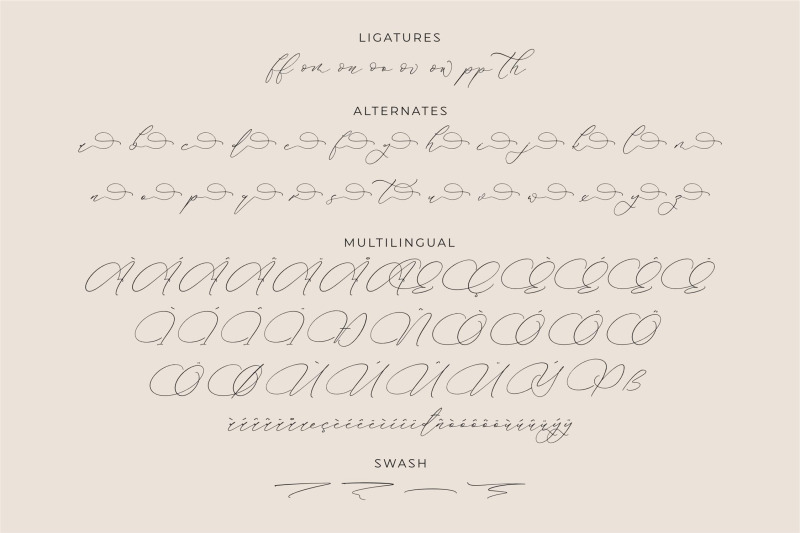 LIGATURES
ff om on oo ov ow pp Th
ALTERNATES
a b c d e f g h i j k l m
n o p q r s t u v w x y z
MULTILINGUAL
À Á Â Ã Ä Å Æ Ç È É Ê Ë
Ì Í Î Ï Ð Ñ Ò Ó Ô Õ
Ö Ø Ù Ú Û Ü Ý Þ ß
SWASH